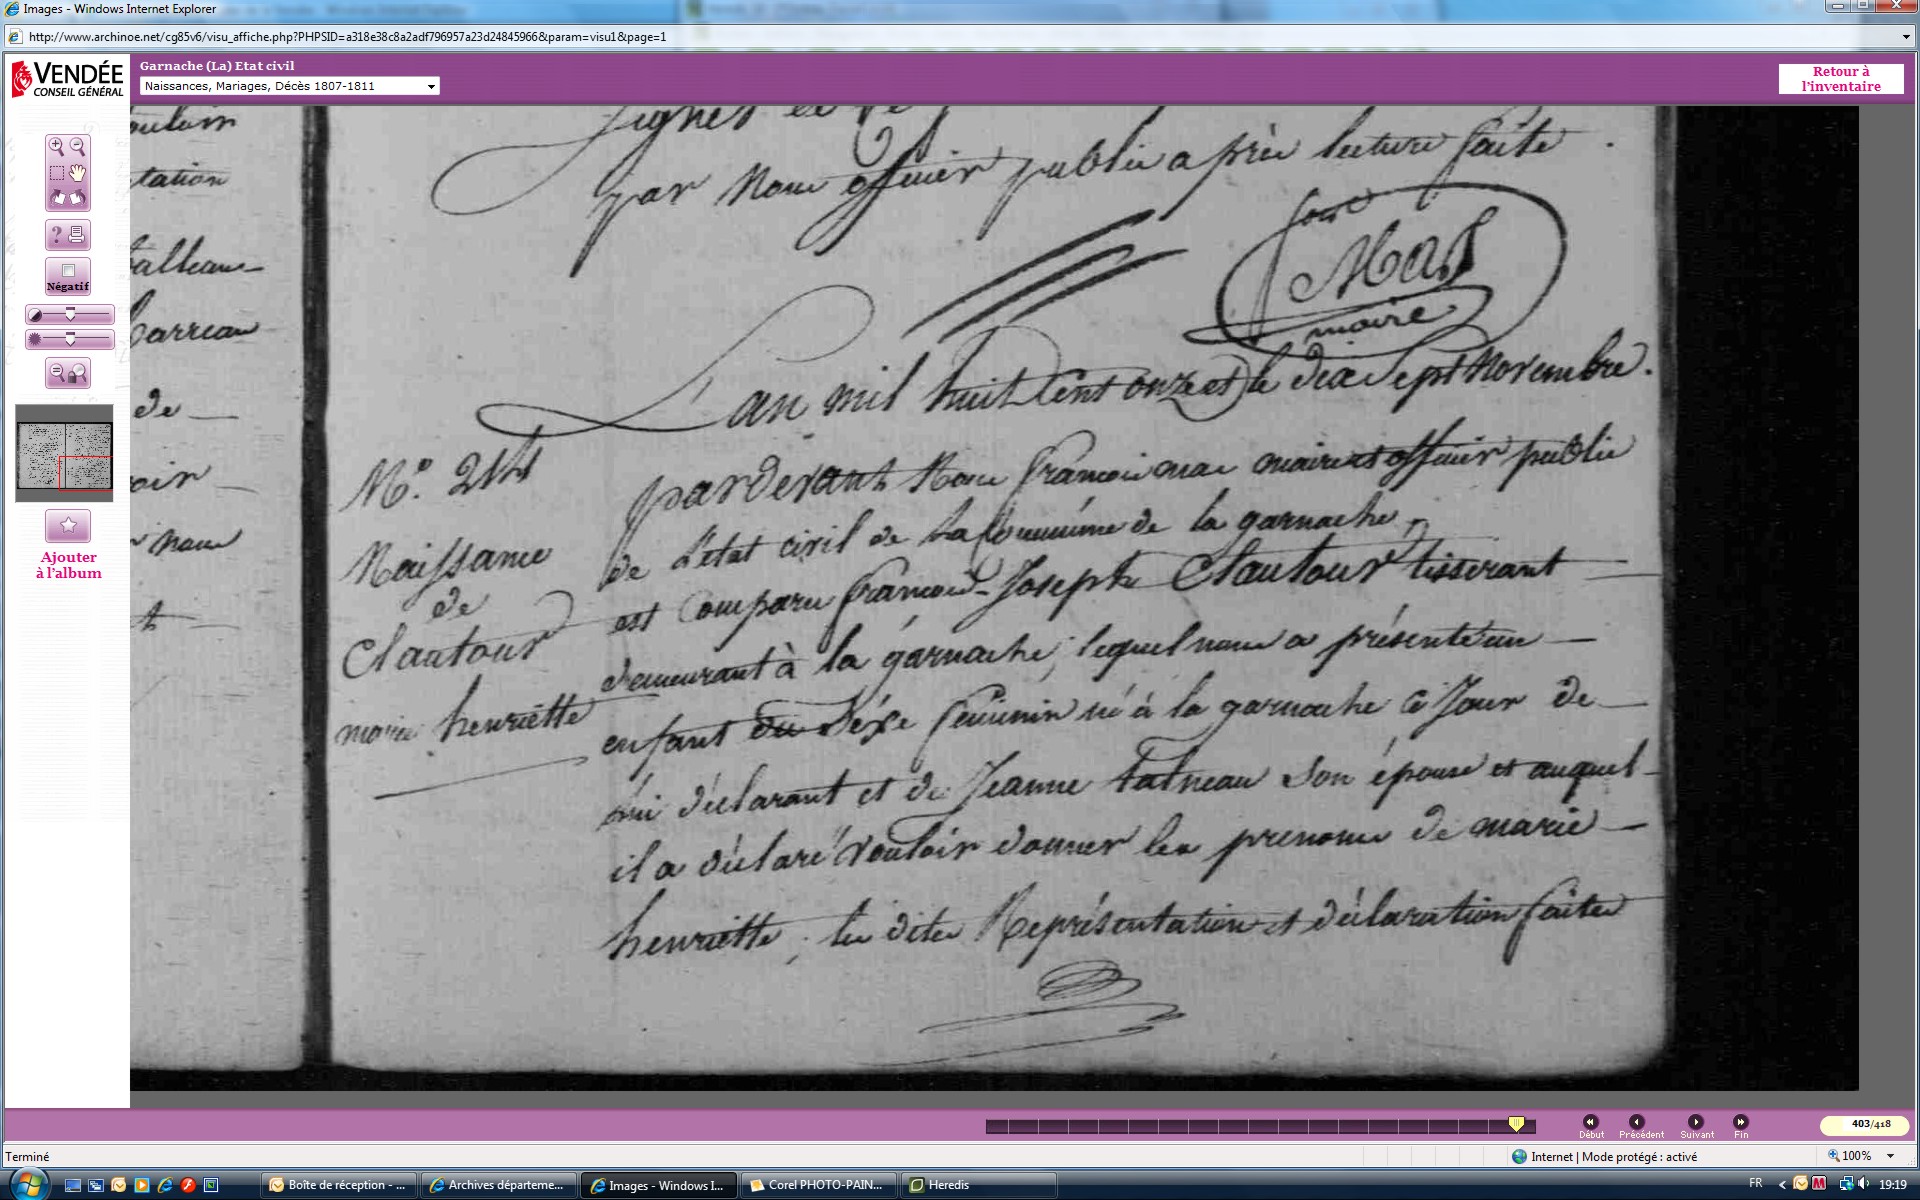 Images - Windows Internet Explorer
http://www.archinoe.net/cg85v6/visu_affiche.php?PHPSID=a318e38c8a2adf796957a23d24845966&param=visu1&page=1
VENDÉE
CONSEIL GÉNÉRAL
Garnache (La) Etat civil
Naissances, Mariages, Décès 1807-1811
Retour à
l'inventaire
Négatif
Ajouter
à l'album
tation
de
signés
par nous officier public après lecture faite
Mas
maire
L'an mil huit Cent onze et le dix Sept Novembre.
pardevant Nous francois mas maire et officier public
de L'etat civil de La Commune de la garnache,
est Comparu francois Joseph Clautour tisserant
demeurant à la garnache, lequel nous a présenté un
enfant du Séxe feminin né à la garnache ce Jour de
lui déclarant et de Jeanne talneau Son épouse et auquel
il a déclaré vouloir donner les prenoms de marie
henriette, les dites Représentation et déclaration faites
Naissance
de
Clautour
marie henriette
Début
Précédent
Suivant
Fin
403/418
Terminé
Internet | Mode protégé : activé
100%
Boîte de réception - ...
Archives départeme...
Images - Windows I...
Corel PHOTO-PAIN...
Heredis
FR
19:19